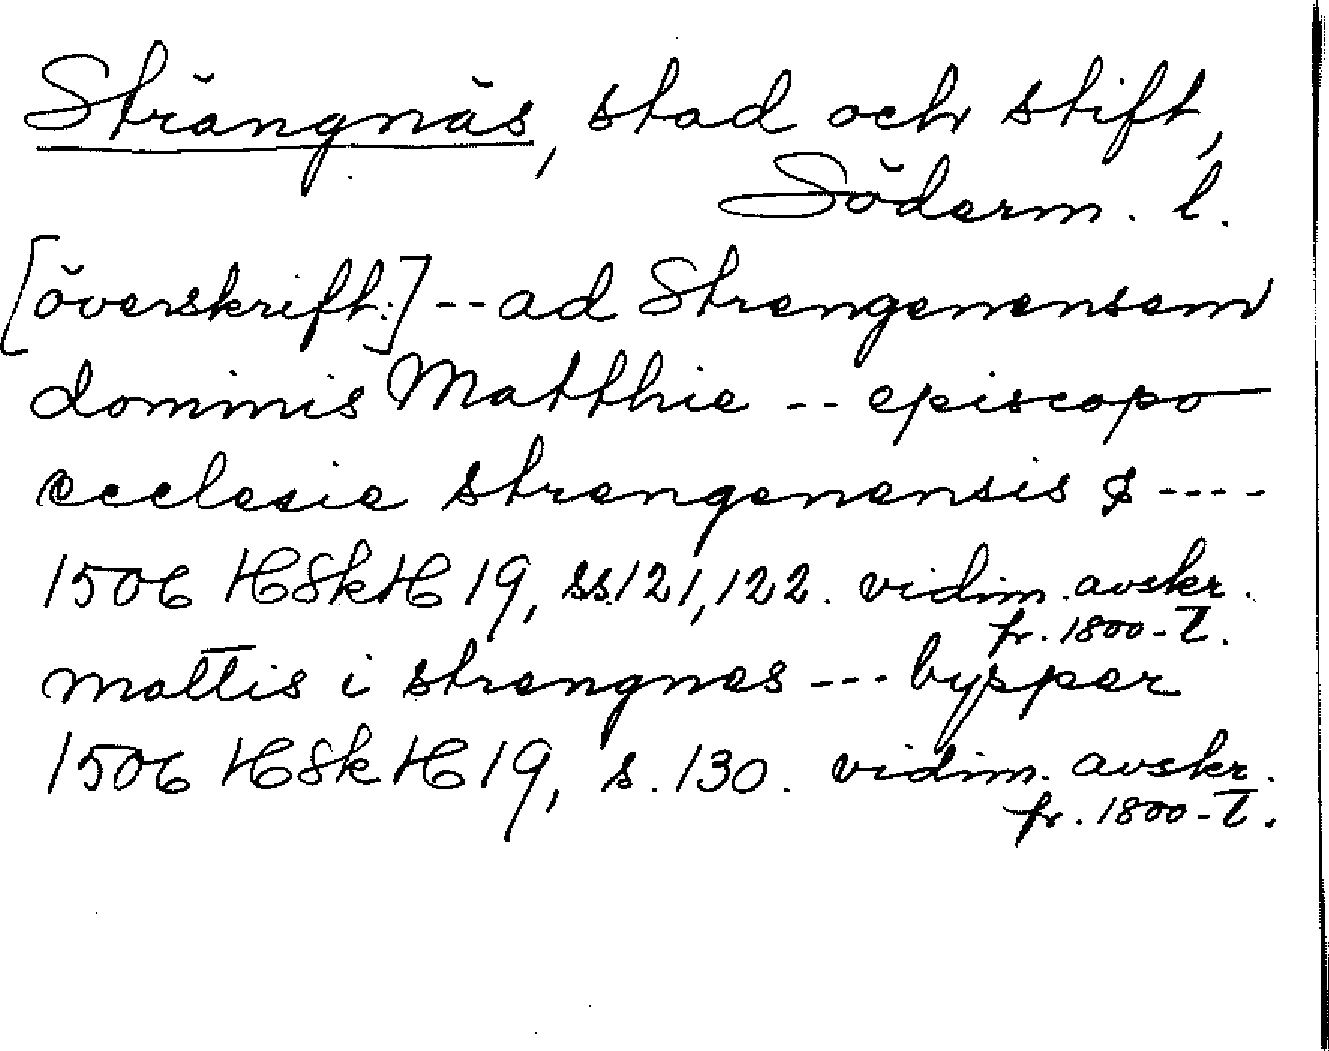 Strängnäs, stad och stift,
Söderm. l.
[överskrift:] -- ad Strengenensem
dominis Matthie -- episcopo
ecclesie strengenensis &----
1506 HSkH 19, ss.121,122. vidim. avskr.
fr. 1800-t.
mattis i strengnes --- bysper
1506 HSkH 19, s. 130. vidim. avskr.
fr. 1800-t.